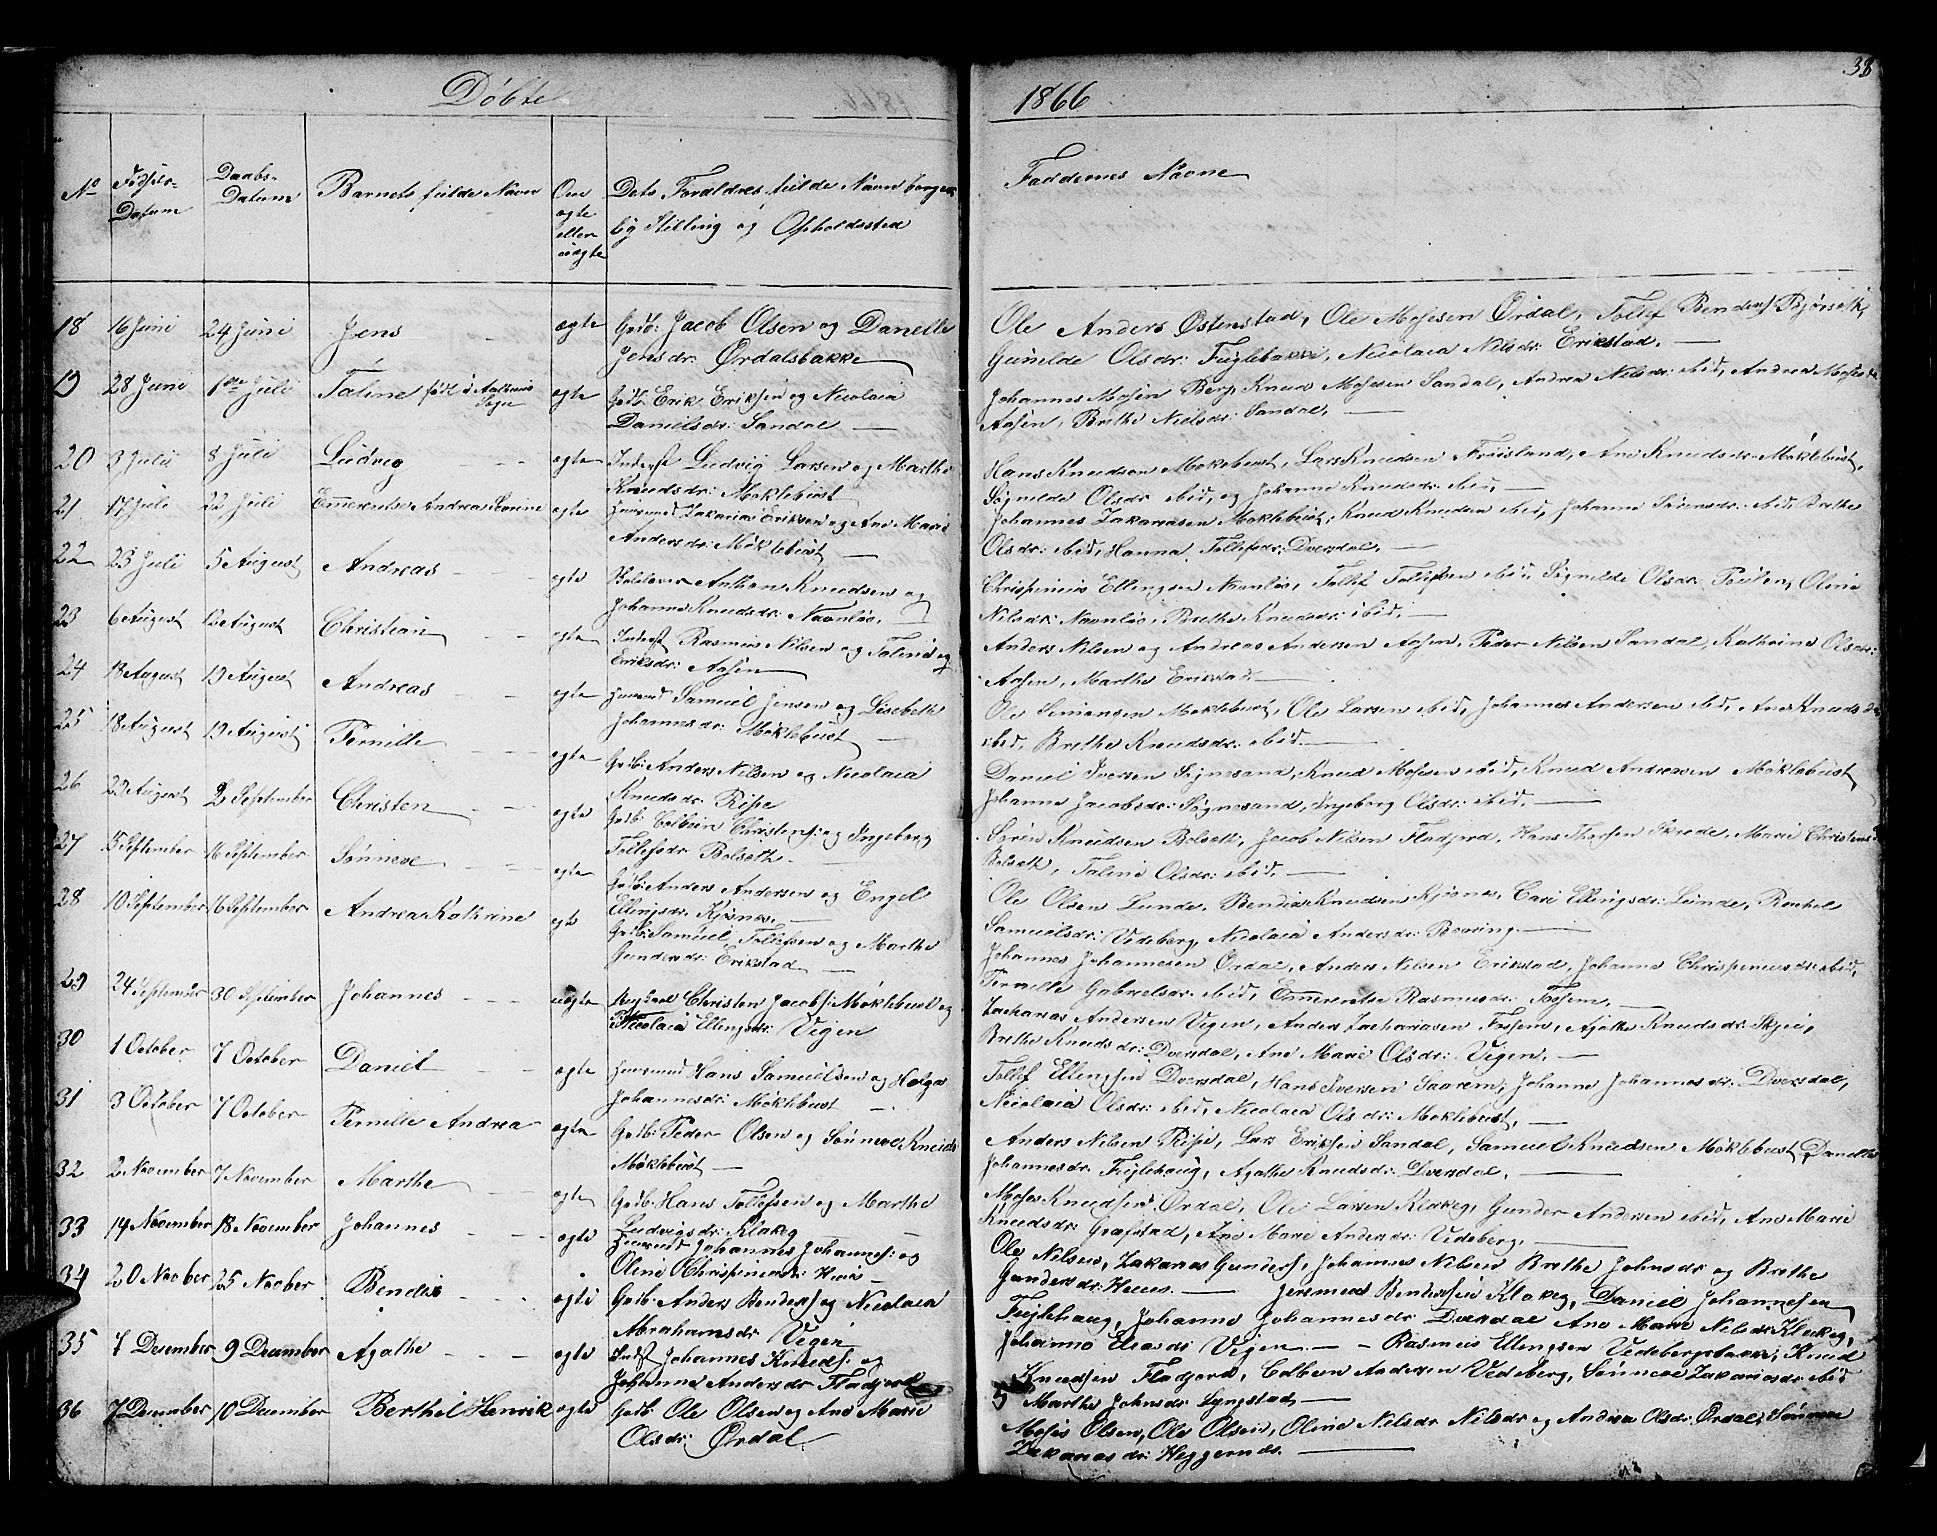 Døbte
1866
38
No
Fødsels-
Datum
Daabs-
Datum
Barnets fulde Navn
Om
ægte
eller
uægte
Dets Forældres fulde Navn borger-
lig Stilling og Opholdssted
Faddernes Navne
18 16 Juni 24 Juni Jens ægte Gdb: Jacob Olsen og Danelle
Jensdr: Ørdalsbakke
Ole Anders Østenstad, Ole Mosesen Ørdal, Tollef Benders Bjørseth,
Gunilde Olsdr: Fuglebakke, Nicolaia Nilsdr: Erikstad.
19 28 Juni 1ste Juli Taline født i Aalhuus Sogn ægte Gdb. Erik Eriksen og Nicolaia
Danielsdr: Sandal
Johannes Mosen Berg, Knud Mosesen Sandal, Andrea Nilsdr: ibid, Andrea Mosesdr
Aasen, Brethe Nielsdr: Sandal.
20 3 Juli 8 Juli Ludvig ægte Inderst Ludvig Larsen og Marthe
Knudsdr: Moklebust
Hans Knudsen Moklebust, Lars Knudsen Fruisland, Ane Knudsdr: Møklebust,
Søgnilde Olsdr ibid, og Johanne Knudsdr: ibid.
21 17 Juli 22 Juli Emerentse Andrea Severine ægte Huusmd Zakarias Eriksen og Ane Marie
Andersdr: Møklebust
Johannes Zakariasen Moklebust, Knud Knudsen ibid, Johanne Sørensdr: ibid, Brethe
Olsdr: ibid, Hanna Tollefsdr: Dversdal.
22 23 Juli 5 August Andreas ægte Anthon Knudsen og
Johanne Knudsdr: Navnløs.
Chrispinius Ellingsen Navnløs, Tollef Tollefsen ibid, Søgnilde Olsdr: Oline
Nilsdr: Navnløs, Brethe Knudsdr: ibid.
23 6 August 12 August Christian ægte Inderst Rasmus Nilsen og Taline
Eriksdr: Aasen
Anders Nilsen og Andreas Andersen Aasen, Peder Nilsen Sandal, Kathrine Olsdr:
Aasen, Marthe Erikstad.
24 18 August 19 August Andreas ægte Huusmd Samuel Jensen og Lisebeth
Johannesdr: Møklebust
Ole Simonsen Moklebust, Ole Larsen ibid, Johannes Andersen ibid, Ane Knudsdr
ibid, Brethe Knudsdr: ibid.
25 18 August 19 August Pernille ægte Gdb: Anders Nilsen og Nicolaia
Knudsdr: Ripe
Daniel Iversen Søgnesand, Knud Mosesen ibid, Knud Andersen Møklebust
Johanne Jacobsdr: Søgnesand, Ingeborg Olsdr: ibid.
26 23 August 2 September Christen ægte Gdb: Colbein Christens: og Ingeborg
Tollefsdr: Bolseth.
Søren Knudsen Bolseth, Jacob Nilsen Fladjord, Hans Skrede, Marie Christensdr
Bolseth, Taline Olsdr: ibid.
27 15 September 16 September Sønneve ægte Gdb: Anders Andersen og Engel
Ellingsdr: Kjøsnes.
Ole Olsen Lunde, Bendix Knudsen Kjøsnes, Cari Ellingsdr: Lunde, Rachel
Samuelsdr: Vedeberg, Nicolaia Andersdr: Bouring.
28 10 September 16 September Andrea Kathrine ægte Gdb: Samuel Tollefsen og Marthe
Gundersdr: Erikstad
Johannes Johannesen Ørdal, Anders Nilsen Erikstad, Johanne Chrispiniusdr: ibid,
Pernille Gabrielsdr: ibid, Emerentse Rasmusdr: Fossem.
29 24 September 30 September Johannes uægte Ungkarl Christen Jacobs: Møklebust og
Nicolaia Ellingsdr: Vigen
Zacharias Andersen Vigen, Anders Zachariasen Fossem, Agathe Knudsdr: Skjei,
Brethe Knudsdr: Dversdal, Ane Marie Olsdr: Vigen.
30 1 October 7 October Daniel ægte Huusmd Hans Samuelsen og Helga
Johannesdr: Møklebust
Tollef Ellingsen Dversdal, Hans Iversen Saarem, Johanne Johannesdr: Dversdal,
Nicolaia Olsdr: ibid, Nicolaia Olsdr: Moklebust.
31 3 October 7 October Pernille Andrea ægte Gdb: Peder Olsen og Sønneve Knudsdr
Møklebust
Anders Nilsen Ripe, Lars Eriksen Sandal, Samuel Knudsen Møklebust, Danelle
Johannesdr: Fuglehaug, Agathe Knudsdr: Dversdal.
32 2 November 7 November Marthe ægte Gdb: Hans Tollefsen og Marthe
Ludvigsdr: Klakeg
Moses Knudsen Ørdal, Ole Larsen Klakeg, Gunder Andersen ibid, Ane Marie
Knudsdr: Grafstad, Ane Marie Andersdr: Vedeberg.
33 14 November 18 November Johannes ægte Huusmd Johannes Johannes: og
Oline Chrispiniusdr: Huus
Ole Nilsen, Zakarias Gunders, Johannes Nilsen Brethe Johnsdr og Brethe
Gundersdr: Huus.
34 20 Novber 25 Novber Bendix ægte Gdb: Anders Benders og Nicolaia
Abrahamsdr: Vigen
Jeremias Bendixsen Klakeg, Daniel Johannesen
Fuglehaug, Johanne Johannesdr: Dversdal Ane Marie Nilsdr: Klakeg,
Johanne Eliasdr Vigen.
35 7 December 9 December Agathe ægte Indst Johannes Knuds: og
Johanne Andersdr Fladjord
Rasmus Ellingsen Vedebergsbakke, Knud
Knudsen Fladjord, Colbein Andersen Vedeberg, Sønneve Zakariasdr: ibid
5 Marthe Johnsdr Lyngstad
36 7 December 10 December Berthel Henrik ægte Gdb: Ole Olsen og Ane Marie
Olsdr: Ørdal.
Moses Olsen, Ole Olsen, Oline Nilsdr Nilsdr og Andrea Olsdr: Ørdal, Sønneve
Zakariasdr: Heggernds.